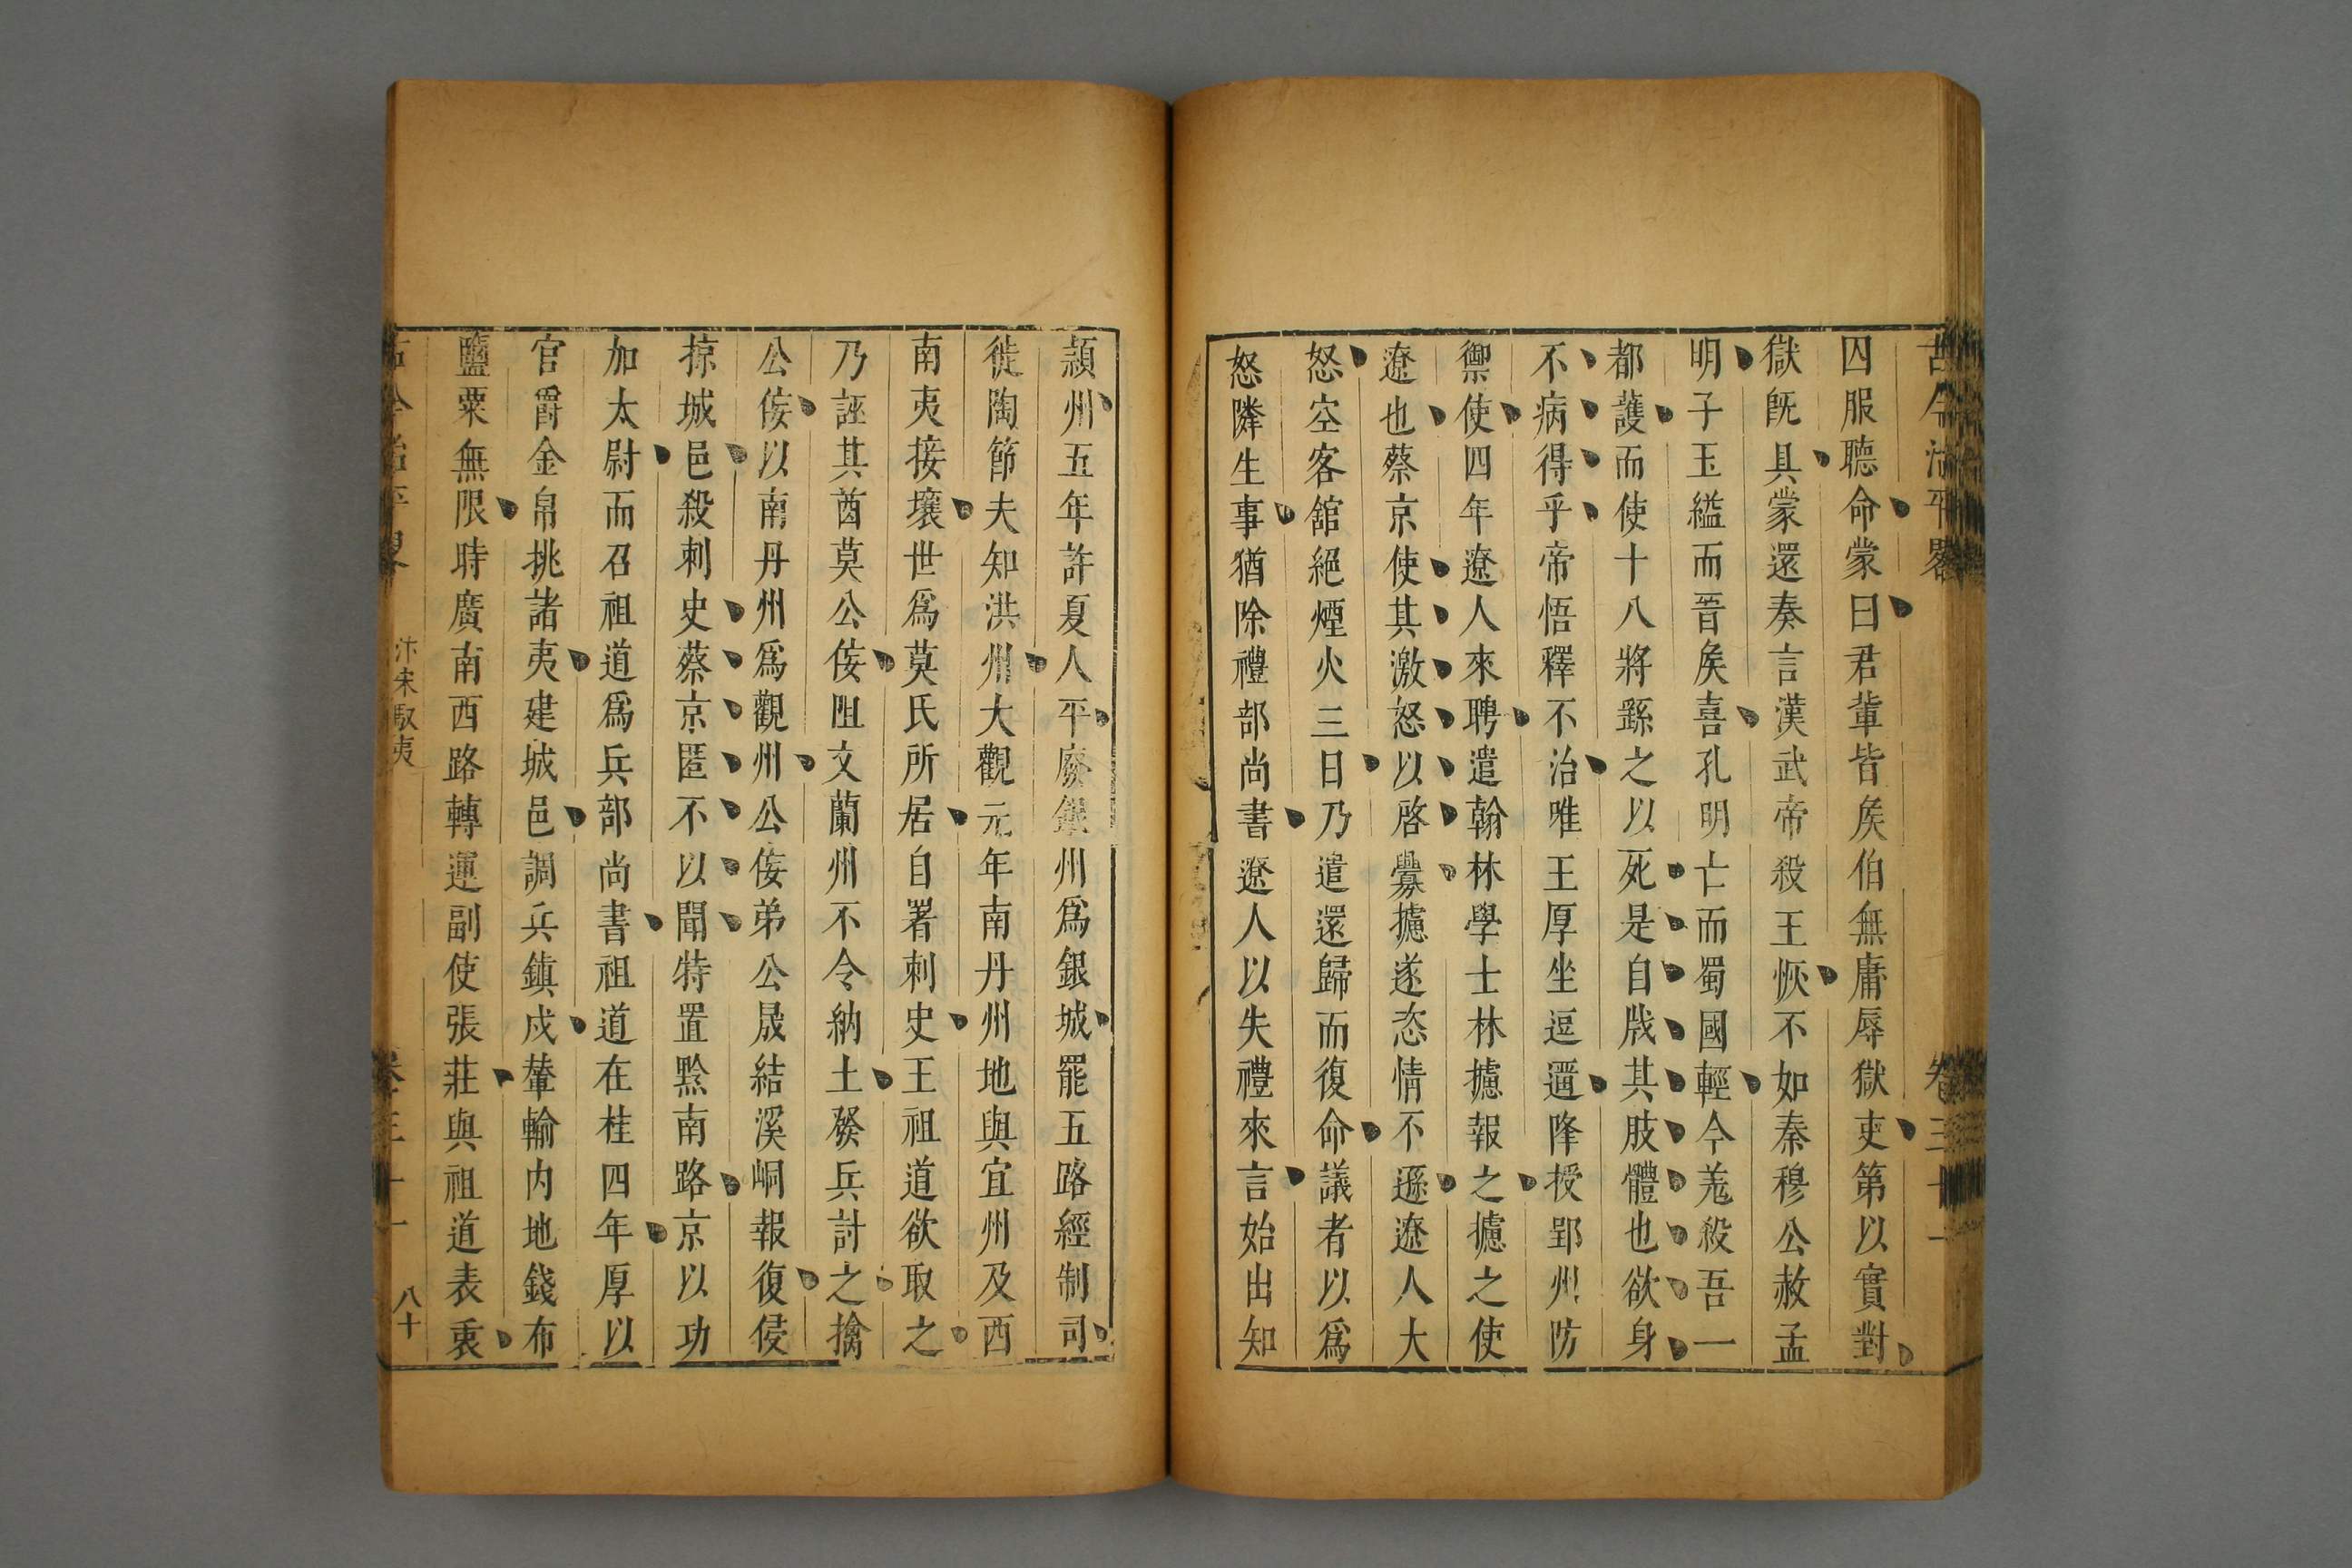 古今治平畧
卷三十一
囚服聽命蒙曰君輩皆矦伯無庸辱獄吏第以實對
獄旣具蒙還奏言漢武帝殺王恢不如秦穆公赦孟
明子玉縊而晉矦喜孔明亡而蜀國輕今羗殺吾一
都護而使十八將繇之以死是自戕其肢體也欲身
不病得乎帝悟釋不治唯王厚坐逗遛降授郢州防
禦使四年遼人來聘遣翰林學士林攄報之攄之使
遼也蔡京使其激怒以啓釁攄遂恣情不遜遼人大
怒空客舘絕煙火三日乃遣還歸而復命議者以爲
怒隣生事猶除禮部尚書遼人以失禮來言始出知
潁州五年許夏人平廢銀州爲銀城罷五路經制司
徙陶節夫知洪州大觀元年南丹州地與宜州及西
南夷接壤世爲莫氏所居自署刺史王祖道欲取之
乃誣其酋莫公佞阻文蘭州不令納土發兵討之擒
公佞以南丹州爲觀州公佞弟公晟結溪峒報復侵
掠城邑殺刺史蔡京匿不以聞特置黔南路京以功
加太尉而召祖道爲兵部尚書祖道在桂四年厚以
官爵金帛挑諸夷建城邑調兵鎮戍輦輸内地錢布
鹽粟無限時廣南西路轉運副使張莊與祖道表裏
古今治平畧
汴宋馭夷
卷三十一
八十